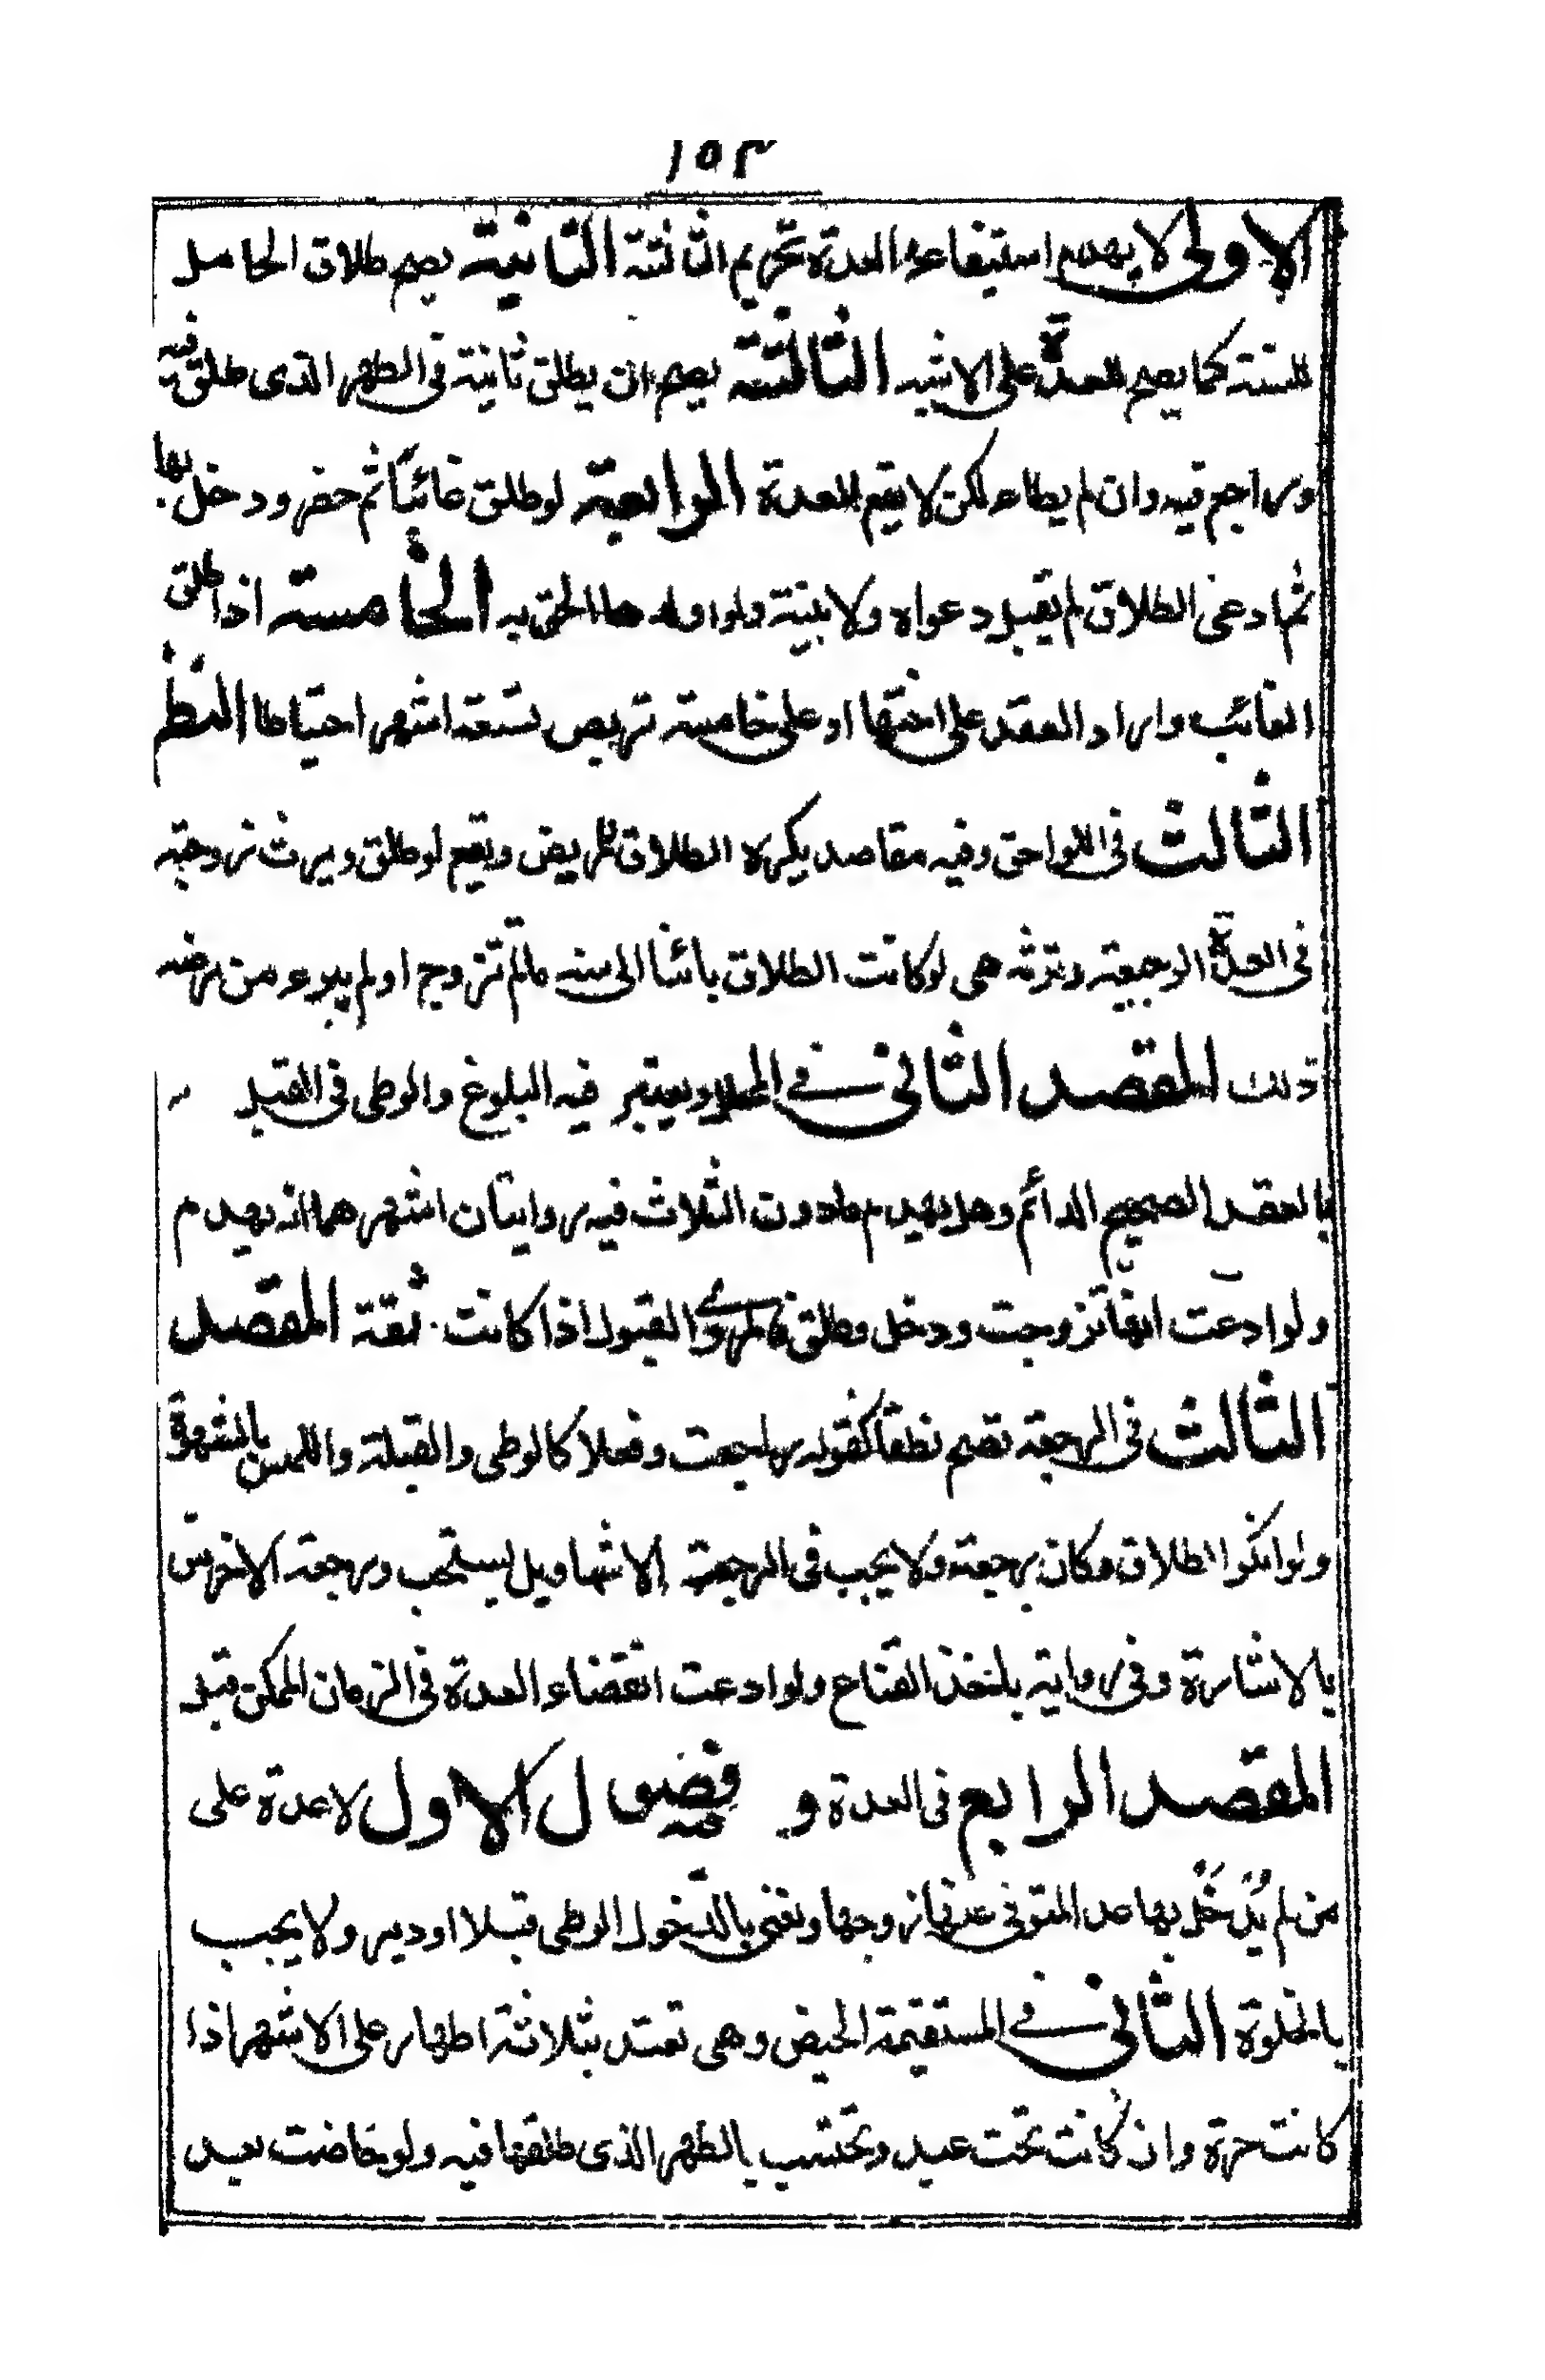 ١٥٣
الاولى لا يهدم استيفاء العدة تحريم الثالثة الثانية يصح طلاق الحامل
للسنة كما يصح للعدة على الاشبه الثالثة يصح ان يطلق ثانية فى الطهر الذى طلق فيه
وراجع فيه وان لم يطاء لكن لا يقع للعدة الرابعة لو طلق غائبًا ثم حضر ودخل بها
ثم ادعى الطلاق لم يقبل دعواه ولا بينة ولو اولدها الحق به الخامسة اذا طلق
الغائب واراد العقد على اختها او على خامسة تربص تسعة اشهر احتياطا النظر
الثالث فى اللواحق وفيه مقاصد يكره الطلاق للمريض ويقع لو طلق ويرث زوجته
فى العدة الرجعية وترثه هى لو كانت الطلاق بائنا الى سنه مالم تتزوج او لم يبرء من مرضه
ذلك المقصد الثانى فے المحلل ويعتبر فيه البلوغ والوطى فى القبل
بالعقد الصحيح الدائم وهل يهدم مادون الثلاث فيه روايتان اشهرهما انه يهدم
ولو ادعت انها تزوجت ودخل وطلق فالمروے القبول اذا كانت ثقة المقصد
الثالث فى الرجعة تصح نطقاً كقوله راجعت وفعلا كالوطى والقبلة واللمس بالشهوة
ولو انكوا الطلاق وكان رجعة ولا يجب فى الرجعة الاشهاد بل يستحب ورجعة الاخرس
بالاشارة وفى رواية باخذ القناع ولو ادعت انقضاء العدة فى الزمان الممكن قبل
المقصد الرابع فى العدة و فيه فصول الاول لا عدة على
من لم يُدخَل بها عدا المتوفى عنها زوجها ونعنى بالدّخول الوطى قبلا او دبر ولا يجب
بالخلوة الثانى فے المستقيمة الحيض وهى تعتد بثلاثة اطهار على الاشهر اذا
كانت حرة وان كانت تحت عبد وتحتسب بالطهر الذى طلقها فيه ولو حاضت بعد